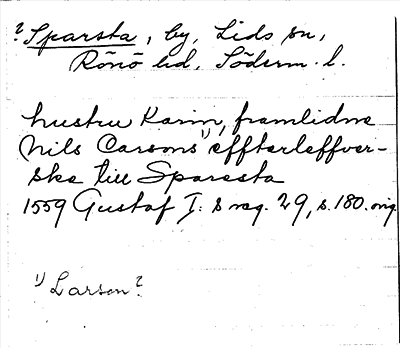 ? Sparsta, by, Lids sn,
Rönö hd, Söderm. l.
hustru Karin, framlidne
Nils Carsons ¹⁾ effterleffver-
ska till Sparsta
1559 Gustaf I:s reg. 29, s. 180. orig
¹⁾ Larson?